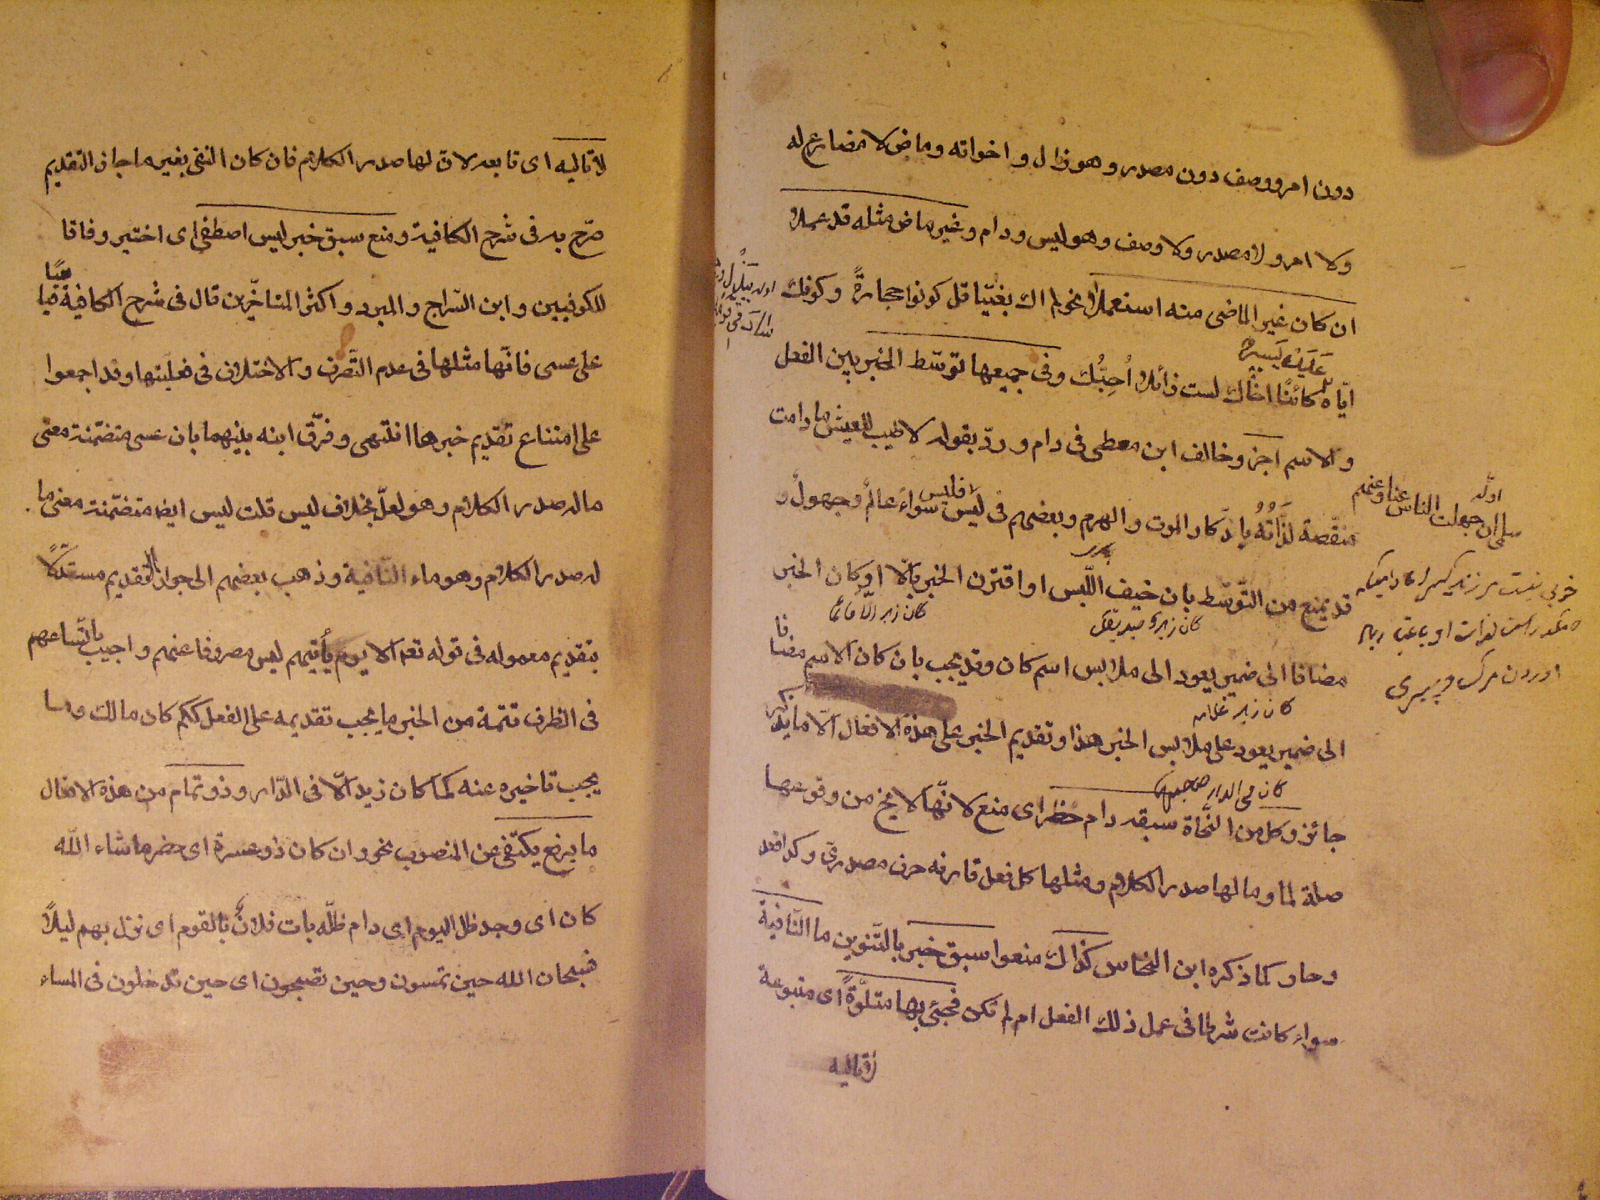 دون امر ووصف دون مصدر وهو زال واخواته وماض لا مضارع له
ولا امر ولا مصدر ولا وصف وهو ليس ودام وغير ماض مثله قد عملا
ان كان غير الماضى منه استعملا نحو لم اك بغيا قل كونوا حجارةً وكونك
اياه عليك يسير
كائنا اخاك لست زائلا اُحِبُّك وفى جميعها توسّط الخبر بين الفعل
والاسم اجز وخالف ابن معطى فى دام وردّ بقوله لا طيب للعيش ما دامت
منغّصة لذّاتُهُ بادّكار الموت والهرم وبعضهم فى ليس فليس سواءً عالمٌ وجهولٌ و
قد يمنع من التوسّط بان خيف اللّبس او اقترن الخبر بالّا او كان الخبر
كان زيد الّا قائما
مضافا الى ضمير يعود الى ملابس اسم كان وقد يجب بان كان الاسم مضافا
كان زيد غلامه
الى ضمير يعود على ملابس الخبر هذا وتقديم الخبر على هذه الافعال الّا ما يذكر
كان فى الدار صاحبها
جائز وكل من النّحاة سبقه دام حظر اى منع لانّها لا يخ من وقوعها
صلة لما وما لها صدر الكلام ومثلها كل فعل قارنه حرف مصدرى وكذا قعد
وجاء كما ذكره ابن النحاس كذاك منعوا سبق خبرٍ بالتّنوين ما النّافية
سواء كانت شرطا فى عمل ذلك الفعل ام لم تكن فجئ بها متلوّةً اى متبوعة
لا تاليه
اوله
سلى ان جهلت الناس عنا وعنهم
لا تاليه اى تابعه لان لها صدر الكلام فان كان النفى بغير ما جاز التقديم
صرّح به فى شرح الكافية ومنع سبق خبر ليس اصطفى اى اختير وفاقا
للكوفيين وابن السّراج والمبرد واكثر المتاخّرين قال فى شرح الكافية قياسًا
على عسى فانّها مثلها فى عدم التّصرف والاختلاف فى فعليّتها وقد اجمعوا
على امتناع تقديم خبرها انتهى وفرّق ابنه بينهما بان عسى متضمّنة معنى
ما له صدر الكلام وهو لعلّ بخلاف ليس قلت ليس ايض متضمّنة معنى ما
له صدر الكلام وهو ماء النّافية وذهب بعضهم الى جواز التقديم مستدلّا
بتقديم معموله فى قوله تعه الا يوم يأتيهم ليس مصروفا عنهم واجيب باتّساعهم
فى الظرف تتمة من الخبر ما يجب تقديمه على الفعل ككم كان مالك وما
يجب تاخيره عنه كما كان زيد الّا فى الدّار وذو تمام من هذه الافعال
ما برفع يكتفى عن المنصوب نحو وان كان ذو عسرة اى حضر ما شاء اللّه
كان اى وجد ظل اليوم اى دام ظلّه بات فلانٌ بالقوم اى نزل بهم ليلًا
فسبحان الله حين تمسون وحين تصبحون اى حين تدخلون فى المساء